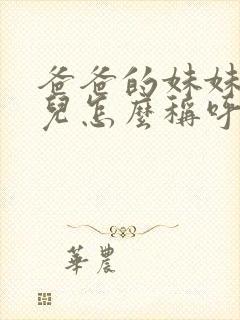 爸爸的妹妹
兒怎麼稱呼
華農